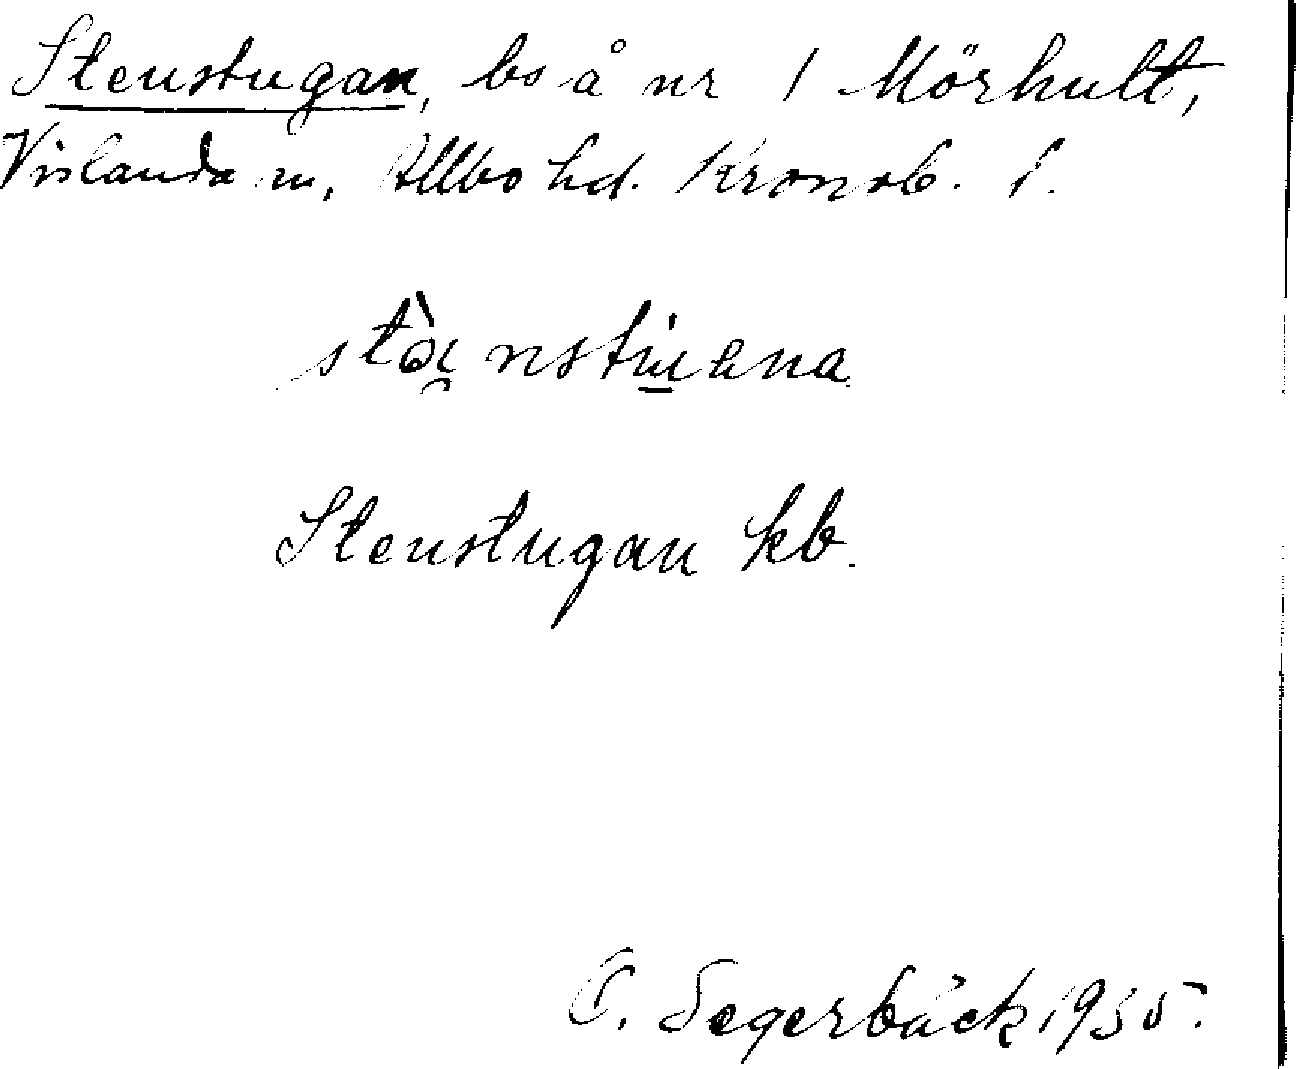 Stenstugan, bs å nr 1 Mörhult,
Vislanda sn, Allbo hd. Kronob. l.
Stenstugan kb.
Segerbäck 1935.